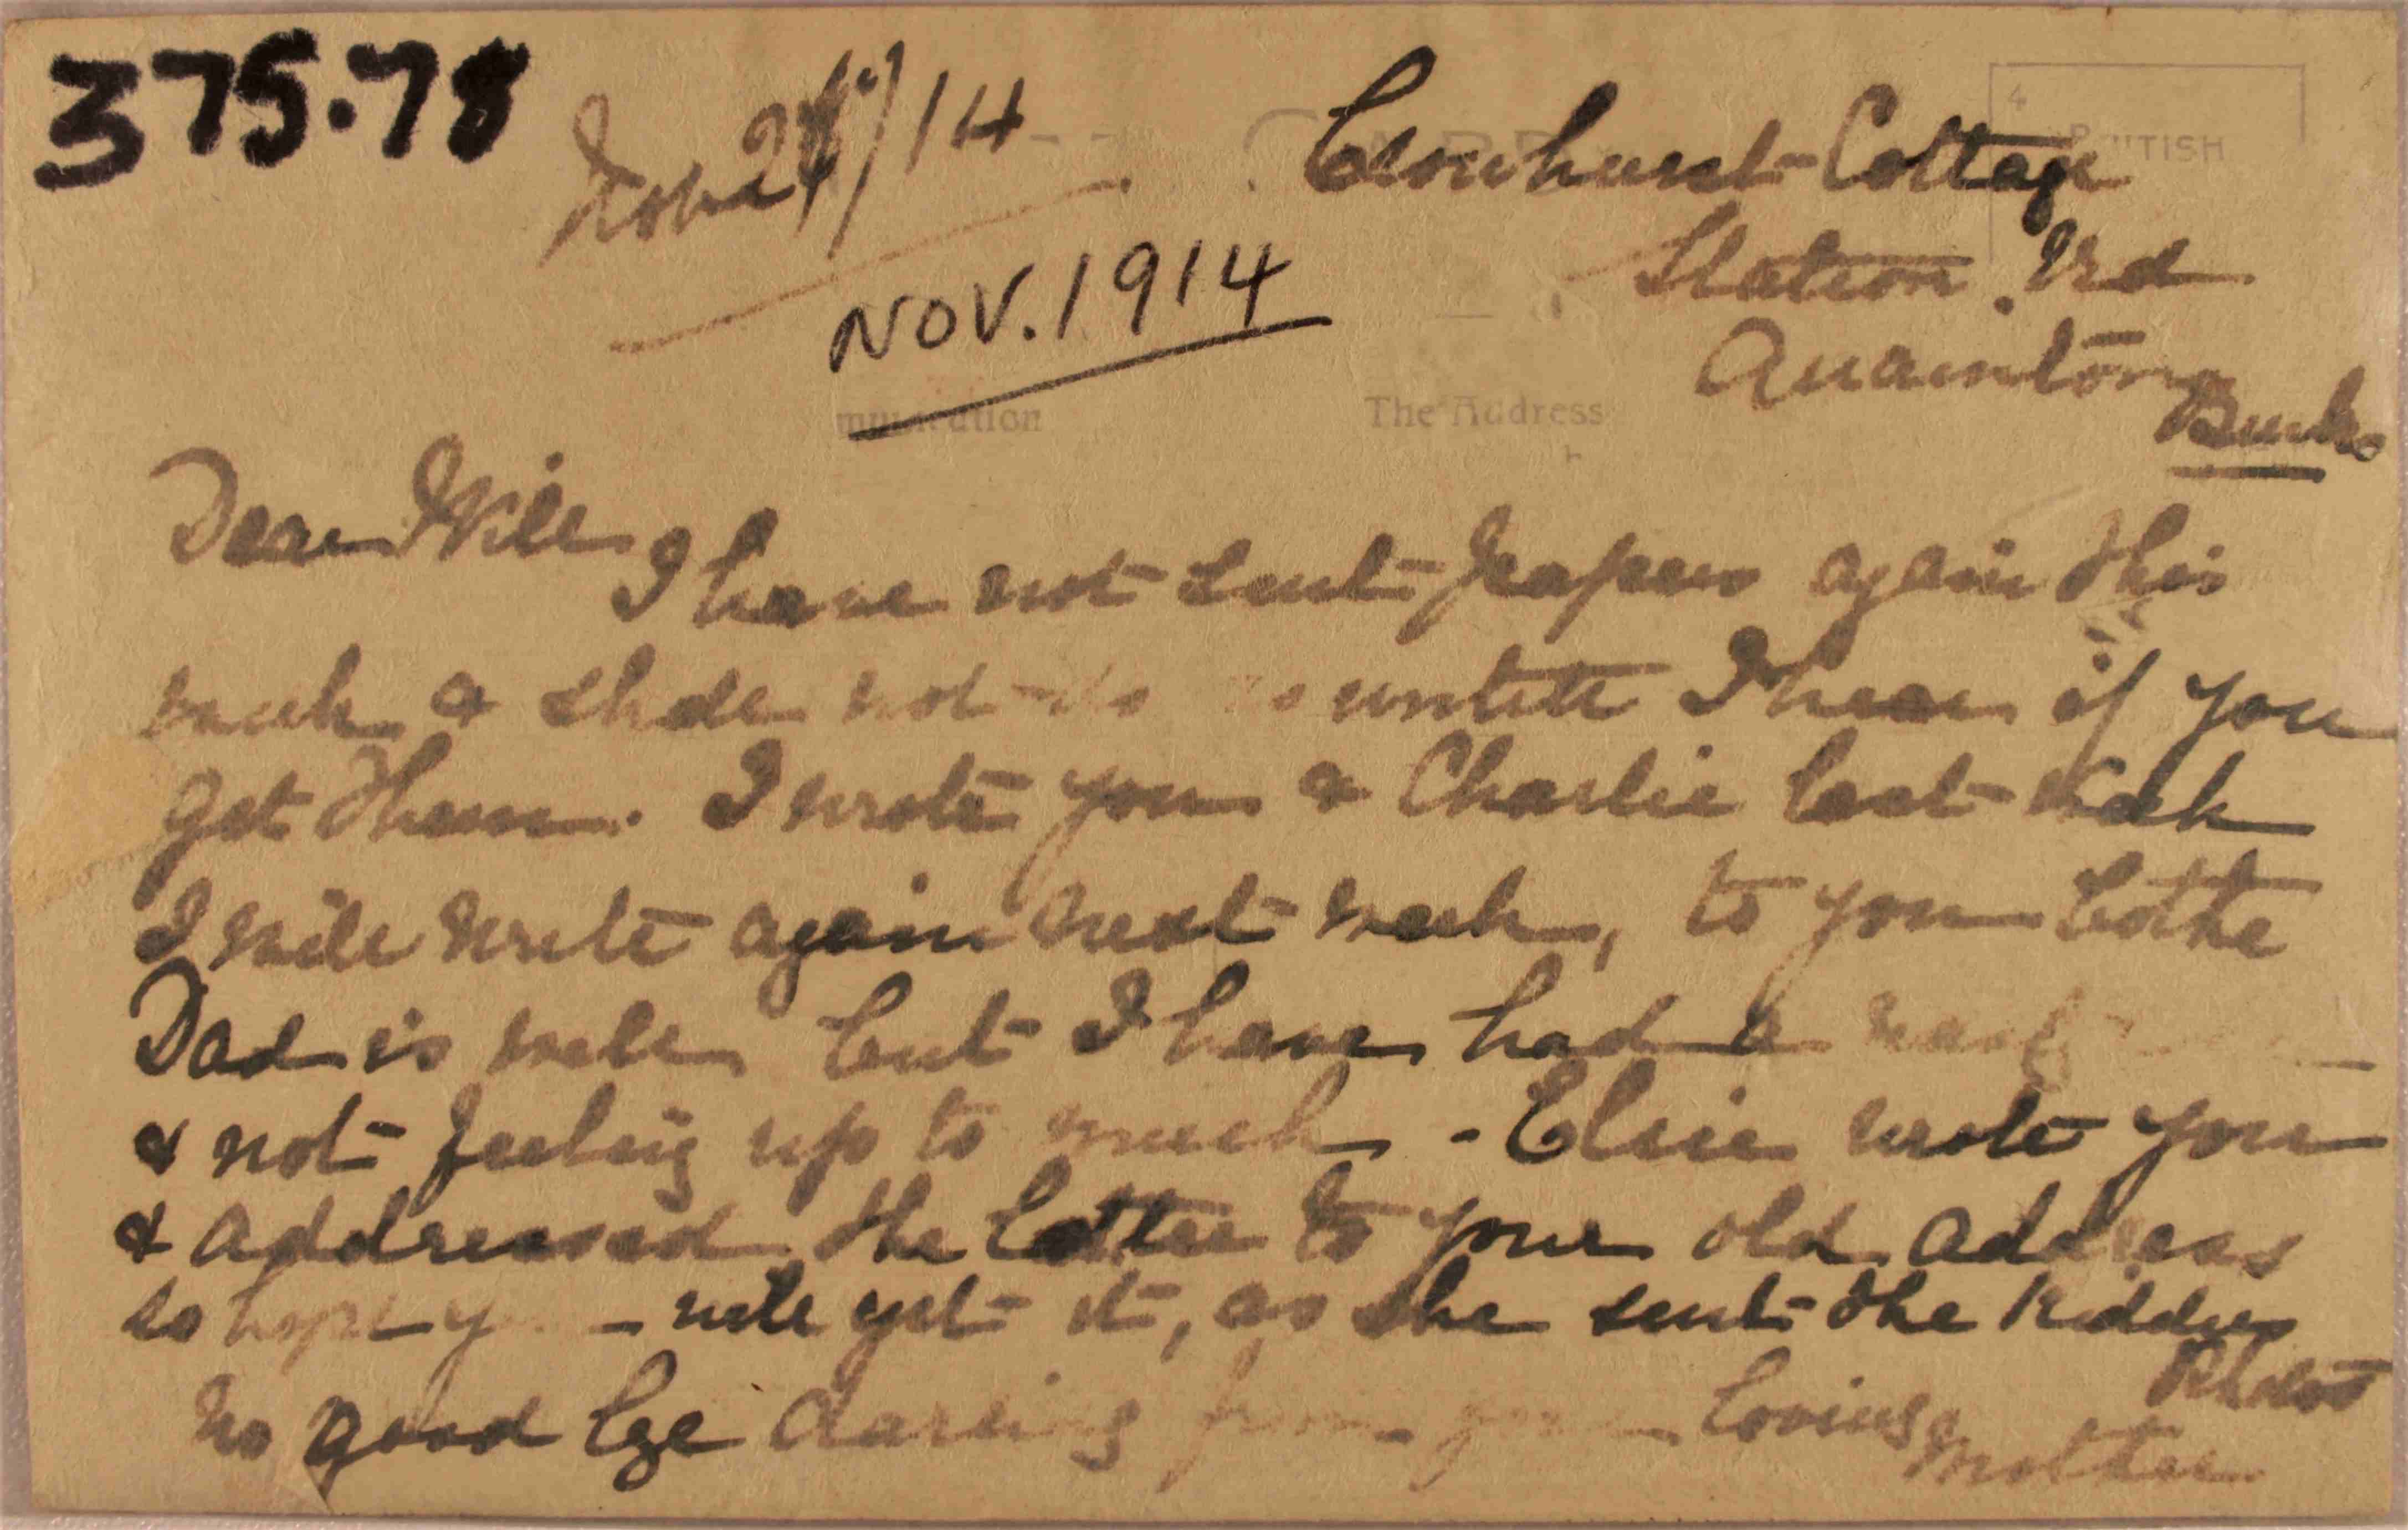 375.78
Nov 24/14
Crowhurst Cottage
BRITISH
Station Rd
NOV. 1914
Quainton
Bucks
The Address
Dear Will
I have not sent papers again this
week & shall not do so untill I hear if you
get them. I wrote you & Charlie last week
I will write again next week, to you bothe
Dad is well but I have had a
& not feeling up to much. Elsie wrote you
& addressed the letter to your old address
so hope you will get it, as she sent the Kiddies
Photos
So good bye darling from your loving
Mother